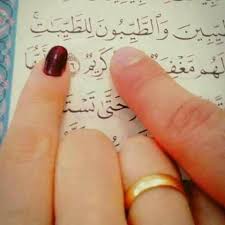 ـيِّبِينَ وَالطَّيِّبُونَ لِلطَّيِّبَاتِ
لَهُم مَّغْفِـ كَرِيمٌ
حَتَّىٰ تَسْتَـ